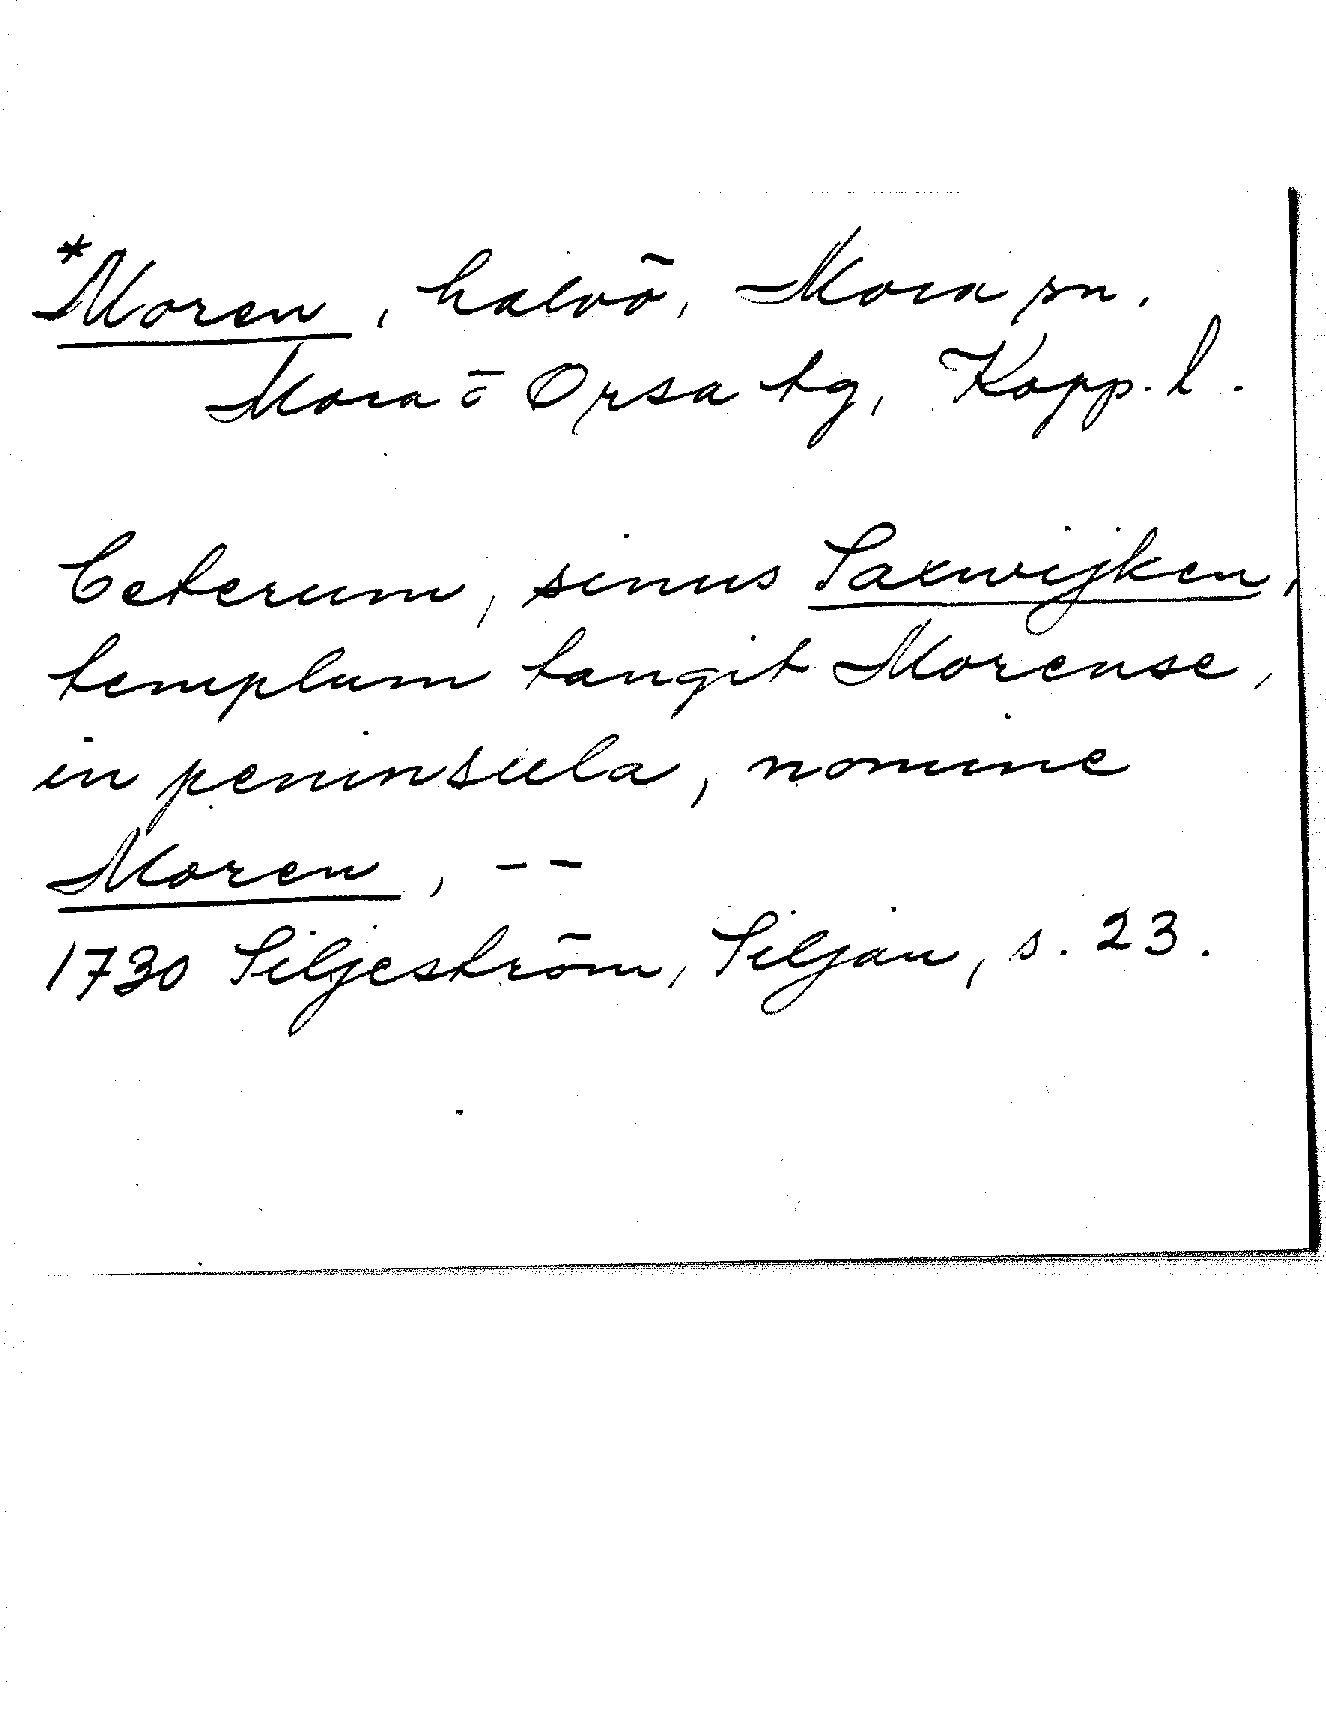 *Moren, halvö, Mora sn.
Mora o Orsa tg, Kopp. l.
Ceterum, sinus Saxwijken,
templum tangit Morense,
in peninsula, nomine
Moren, --
1730 Siljeström, Siljan, s. 23.